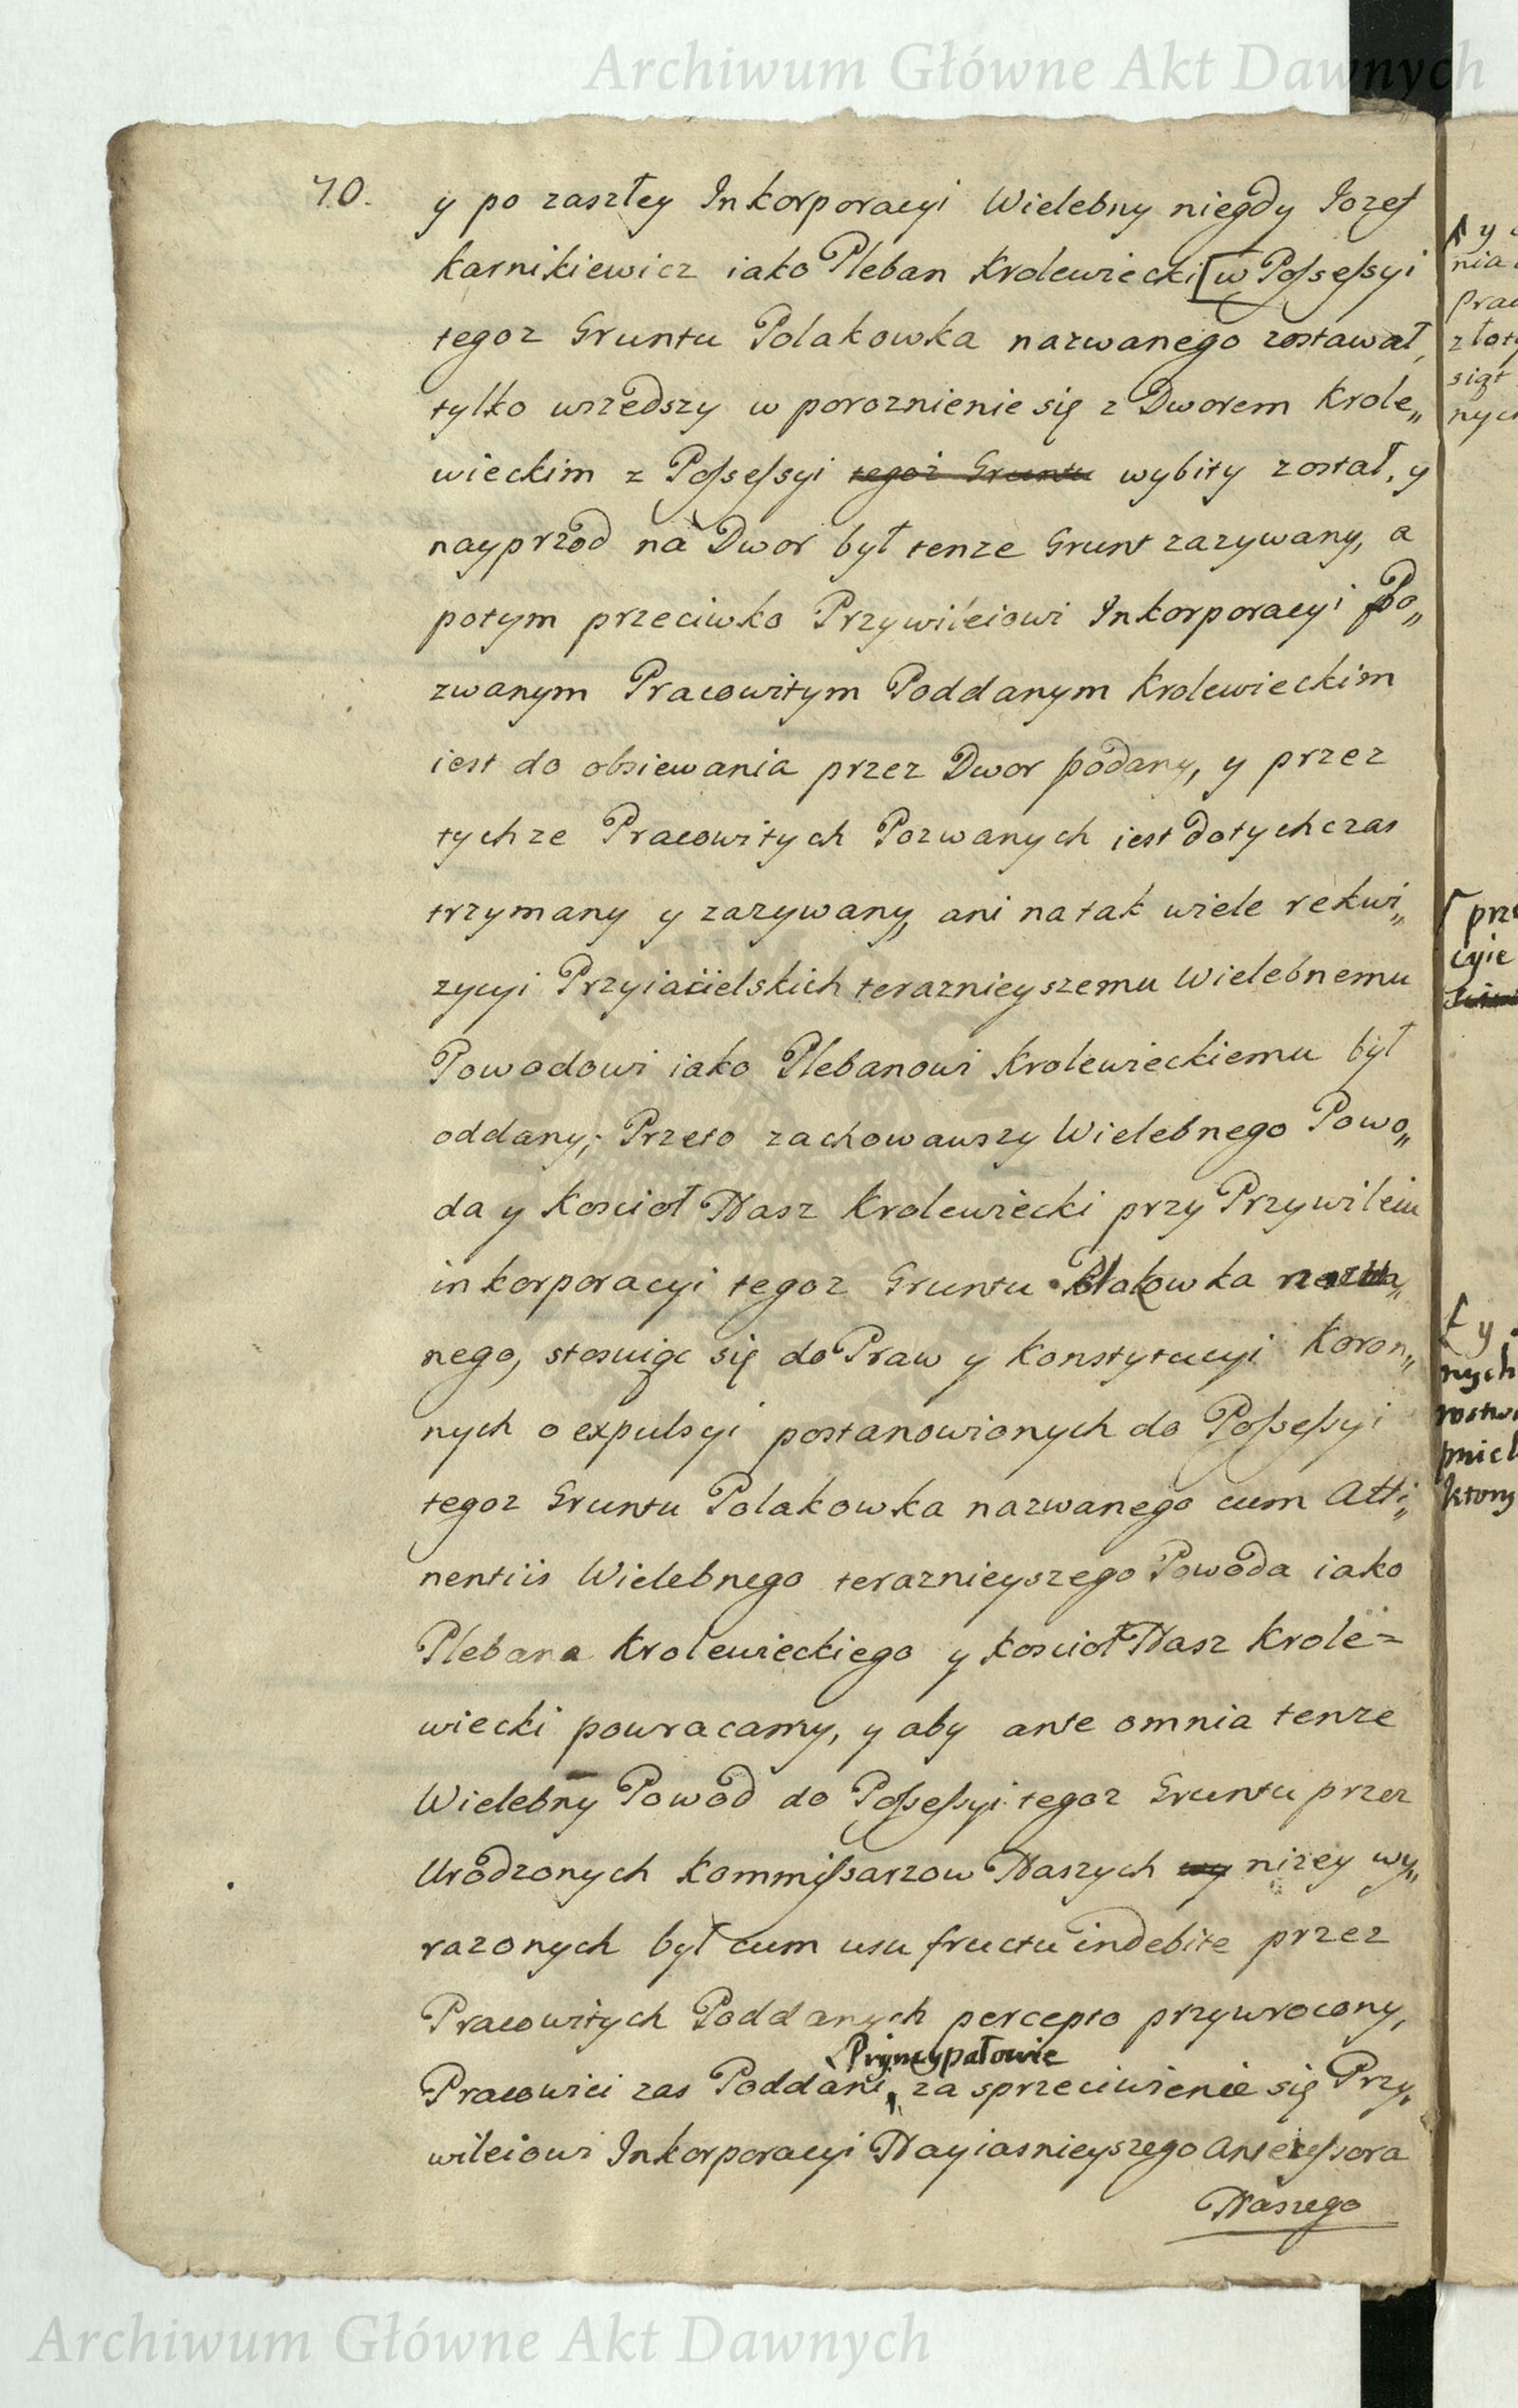 Archiwum Główne Akt Dawnych
70.
y po zaszłey Inkorporacyi Wielebny niegdy Iozef
Karnikiewicz iako Pleban Krolewiecki [w Possessyi
tegoz Gruntu Polakowka nazwanego zostawał,
tylko wszedszy w poroznienie się z Dworem Krole„
wieckim z Possessyi tegoż Gruntu wybity został, y
nayprzod na Dwor był tenze Grunt zazywany, a
potym przeciwko Przywileiowi Inkorporacyi Po„
zwanym Pracowitym Poddanym Krolewieckim
iest do obsiewania przez Dwor podany, y przez
tychze Pracowitych Pozwanych iest dotychczas
trzymany y zazywany, ani na tak wiele rekwi„
zycyi Przyiacielskich teraznieyszemu Wielebnemu
Powodowi iako Plebanowi Krolewieckiemu był
oddany; Przeto zachowawszy Wielebnego Powo„
da y Kościoł Nasz Krolewiecki przy Przywileiu
inkorporacyi tegoz Gruntu Polakowka nazwa„
nego, stosuiąc się do Praw y Konstytucyi Koron„
nych o expulsyi postanowionych do Possessyi
tegoz Gruntu Polakowka nazwanego cum Atti„
nentiis Wielebnego teraznieyszego Powoda iako
Plebana Krolewieckiego y Kościoł Nasz Krole=
wiecki powracamy, y aby ante omnia tenze
Wielebny Powod do Possessyi tegoz Gruntu przez
Urodzonych Kommissarzow Naszych wy nizey wy„
razonych był cum usu fructu indebite przez
Pracowitych Poddanych percepto przywrocony,
Pryncypałowie
Pracowici zas Poddani, za sprzeciwienie się Przy„
wileiowi Inkorporacyi Nayiasnieyszego Antecessora
Naszego
y
nia
Prac
złoty
siąt
nych
[prze
cyie
[y
nych
rostw
pnich
ktory
Archiwum Główne Akt Dawnych